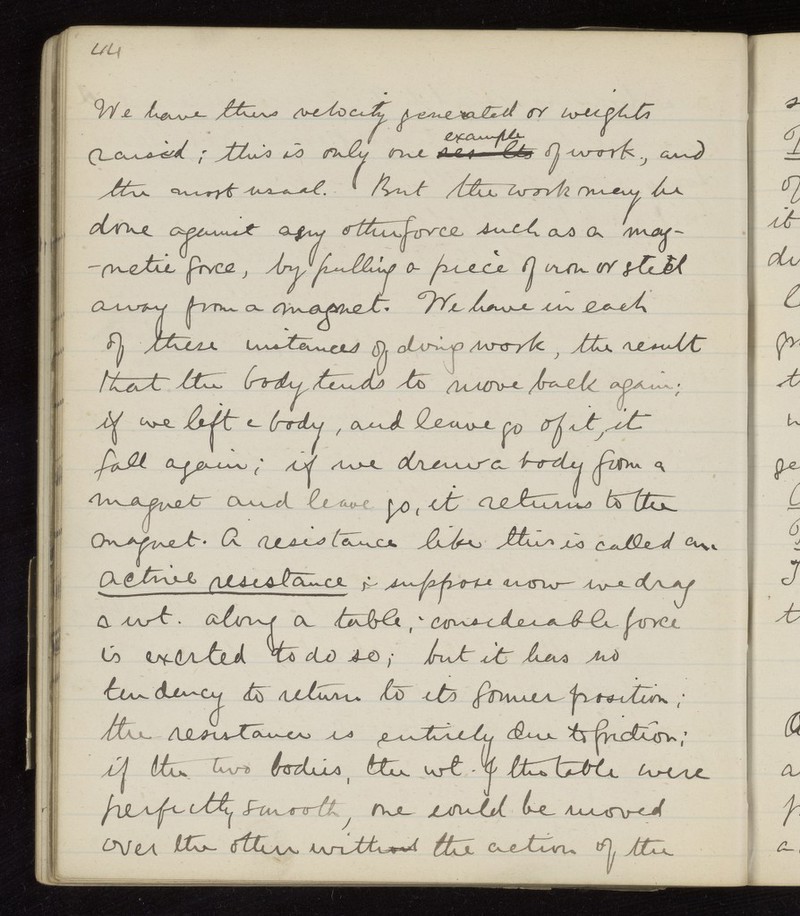 44
We have thus velocity generated or weights
raised; this is only one results example of work, and
the most usual. But the work may be
done against any other force such as a mag-
-netic force, by pulling a piece of iron or steel
away from a magnet. We have in each
of these instances of doing work, the result
that the body tends to move back again;
if we left a body, and leave go of it, it
fall again; if we draw a body from a
magnet and leave go, it returns to the
magnet. A resistance like this is called an
active resistance; suppose now we drag
a wt. along a table; considerable force
is exerted to do so; but it has no
tendency to return to its former position;
the resistance is entirely due to friction;
if the two bodies, the wt. & the table were
perfectly smooth, one could be moved
over the other without the action of the